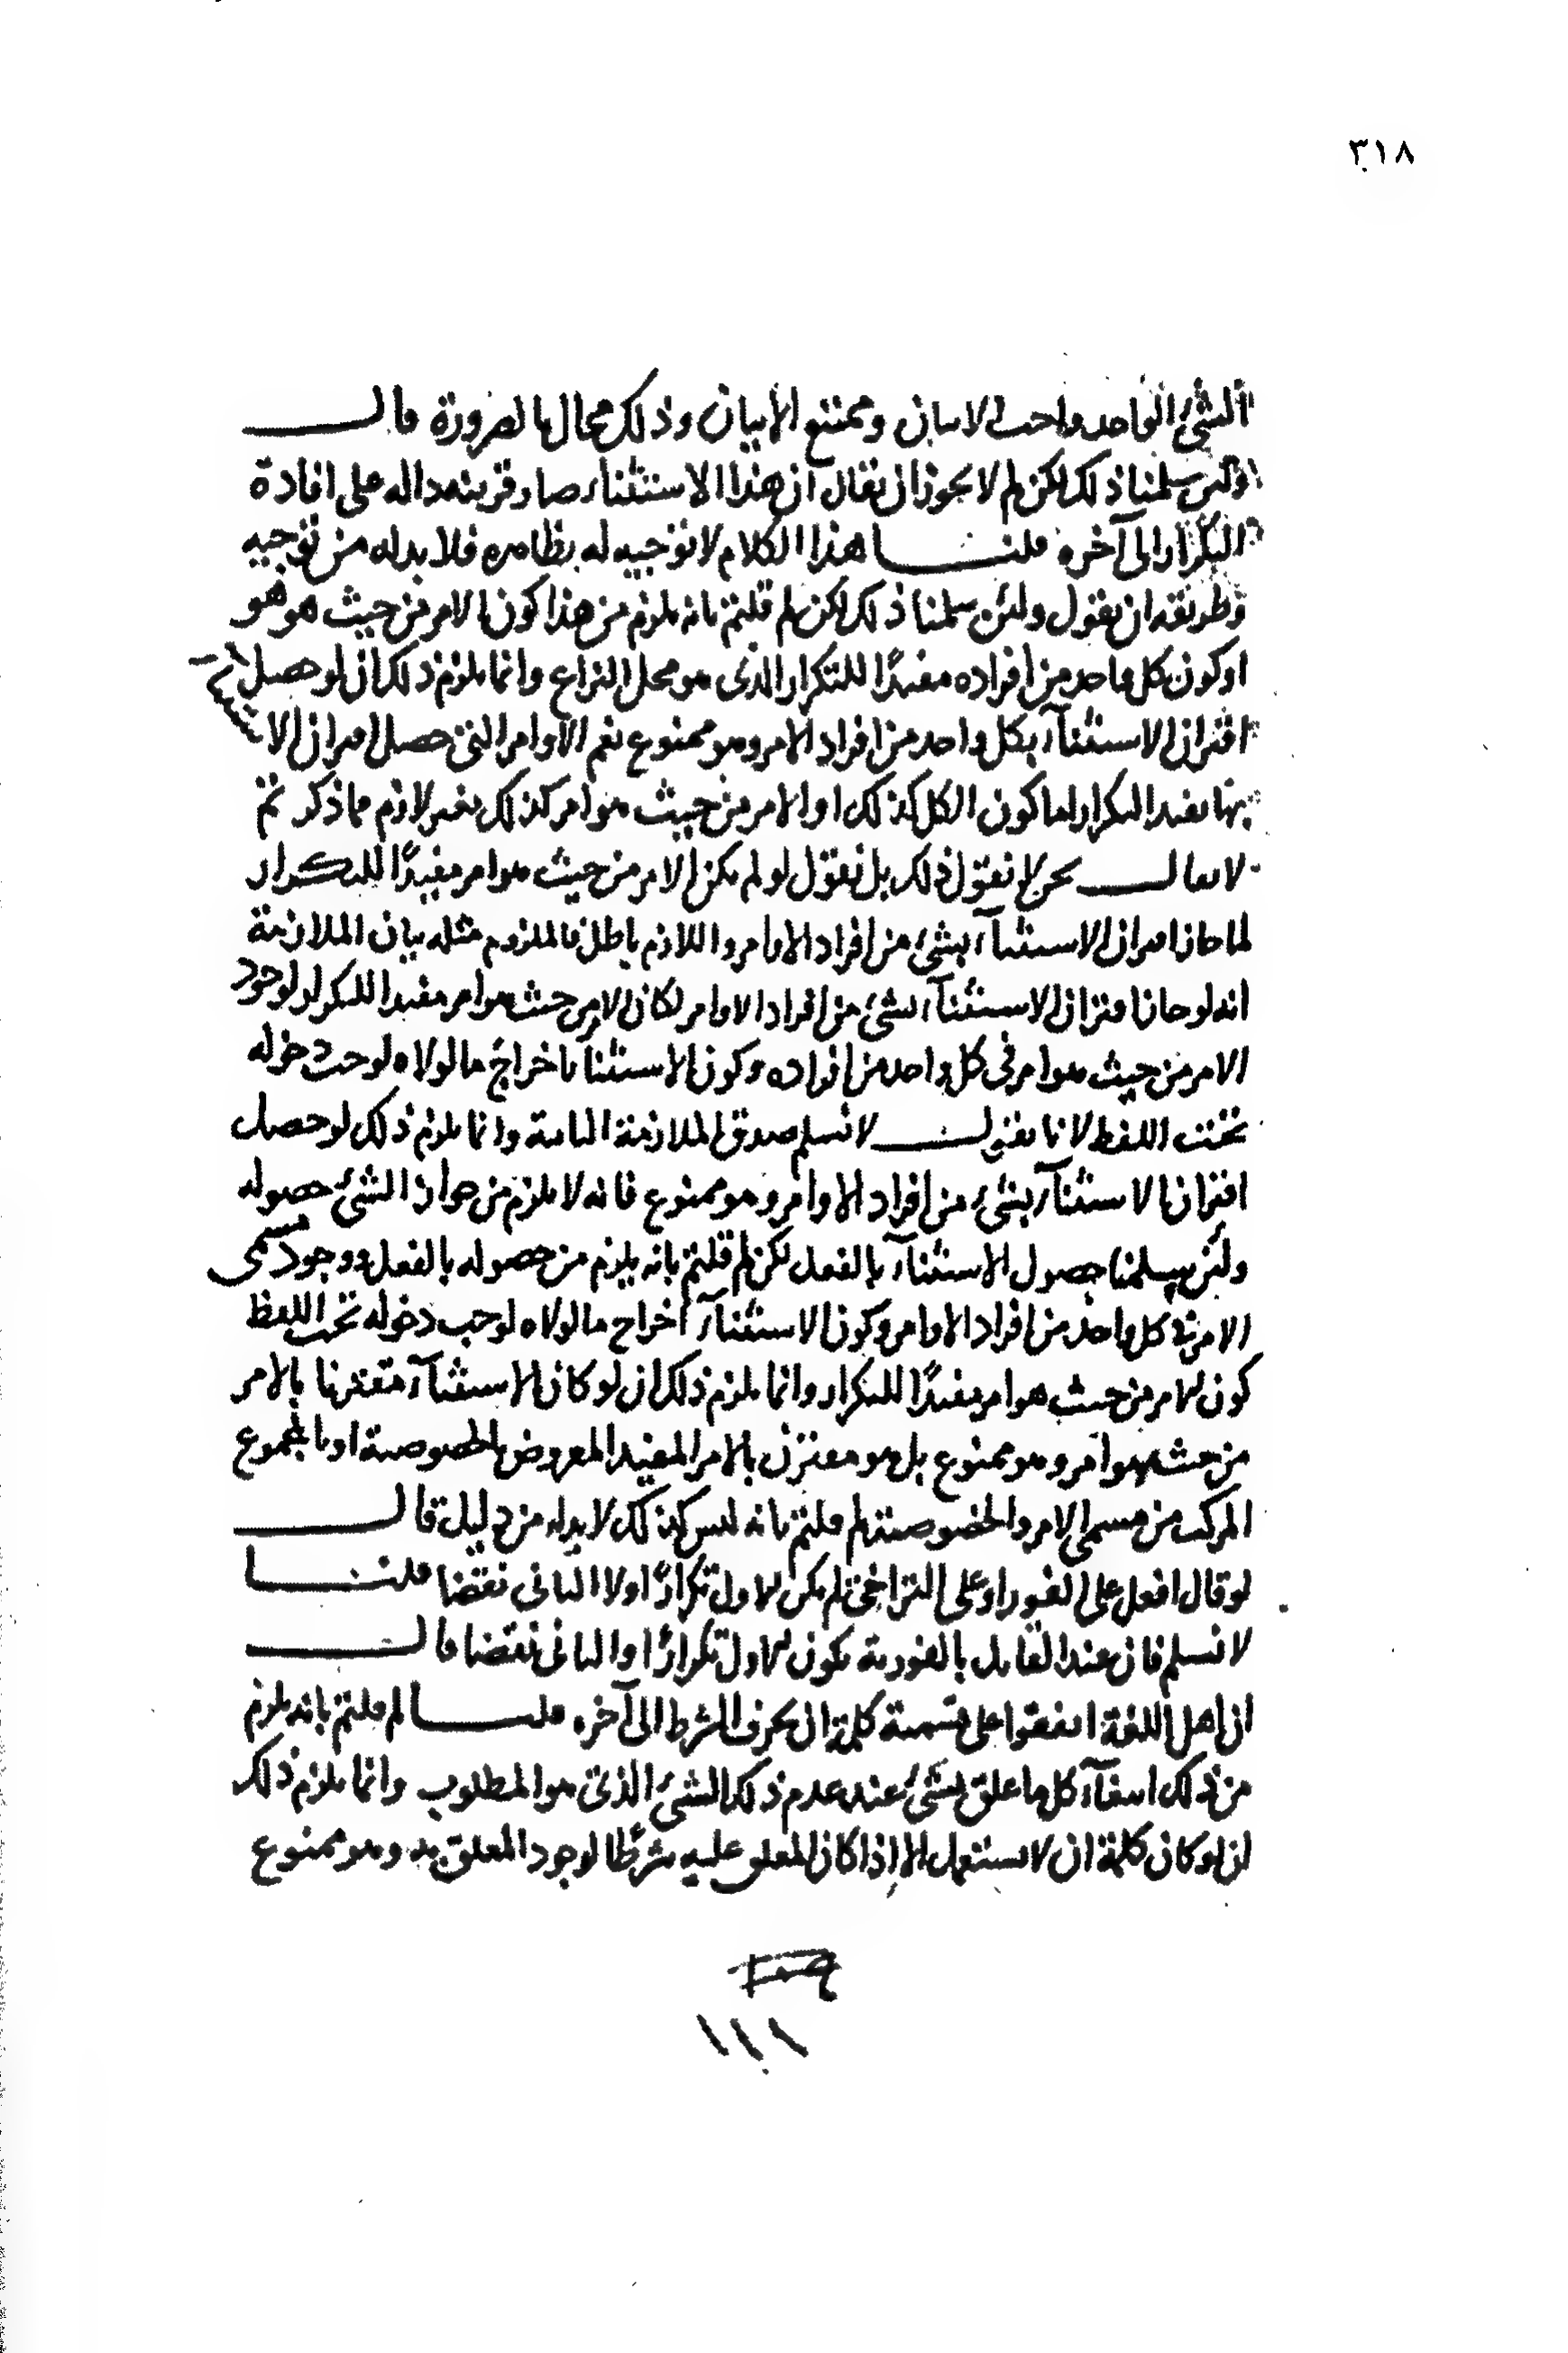 ٣١٨
الشئ الواحد واجب الاتيان وممتنع الاتيان وذلك محال بالضرورة قال
ولئن سلمنا ذلك لكن لم لا يجوز ان يقال ان هذا الاستثناء صار قرينة دالة على افادة
التكرار الى آخره قلنا هذا الكلام لا توجيه له بظاهره فلا بد له من توجيه
وطريقه ان يقول ولئن سلمنا ذلك لكن لم قلتم بانه يلزم من هذا كون الامر من حيث هو هو
او كون كل واحد من افراده مفيدًا للتكرار الذى هو محل النزاع وانما يلزم ذلك ان لو حصل
اقتران الاستثنآء بكل واحد من افراد الامر وهو ممنوع نعم الاوامر التى حصل اقتران الا
بها يفيد التكرار اما كون الكل كذلك او الامر من حيث هو امر كذلك فغير لازم مما ذكرتم
لا يقال نحن لا نقول ذلك بل نقول لو لم يكن الامر من حيث هو امر مفيدًا للتكرار
لما جاز اقتران الاستثنآء بشئ من افراد الاوامر واللازم باطل فالملزوم مثله بيان الملازمة
انه لو جاز اقتران الاستثنآء بشئ من افراد الاوامر لكان الامر من حيث هو امر مفيدا للتكرار لوجود
الامر من حيث هو امر فى كل واحد من افراده وكون الاستثنآء اخراج ما لولاه لوجب دخوله
تحت اللفظ لانا نقول لا نسلم صدق الملازمة الثانية وانما يلزم ذلك لو حصل
اقتران الاستثنآء بشئ من افراد الاوامر وهو ممنوع فانه لا يلزم من جواز الشئ حصوله
ولئن سلمنا حصول الاستثنآء بالفعل لكن لم قلتم بانه يلزم من حصوله بالفعل ووجود مسمى
الامر فى كل واحد من افراد الاوامر وكون الاستثنآء اخراج ما لولاه لوجب دخوله تحت اللفظ
كون الامر من حيث هو امر مفيدًا للتكرار وانما يلزم ذلك ان لو كان الاستثنآء مقترنا بالامر
من حيث هو امر وهو ممنوع بل هو مقترن بالامر المفيد المعروض للخصوصية او بالمجموع
المركب من مسمى الامر والخصوصية لم قلتم بانه ليس كذلك لا بد له من دليل قال
لو قال افعل على الفور او على التراخى لم يكن الاول تكرارًا ولا الثانى نقضا قلنا
لا نسلم فان عند القايل بالفورية يكون الاول تكرارًا والثانى نقضا قال
ان اهل اللغة اتفقوا على تسمية كلمة ان بحرف الشرط الى آخره قلنا لم قلتم بانه يلزم
من ذلك انتفآء كل ما علق بشئ عند عدم ذلك الشئ الذى هو المطلوب وانما يلزم ذلك
ان لو كان كلمة ان لا تستعمل الا اذا كان المعلق عليه شرطًا لوجود المعلق به وهو ممنوع
١١١